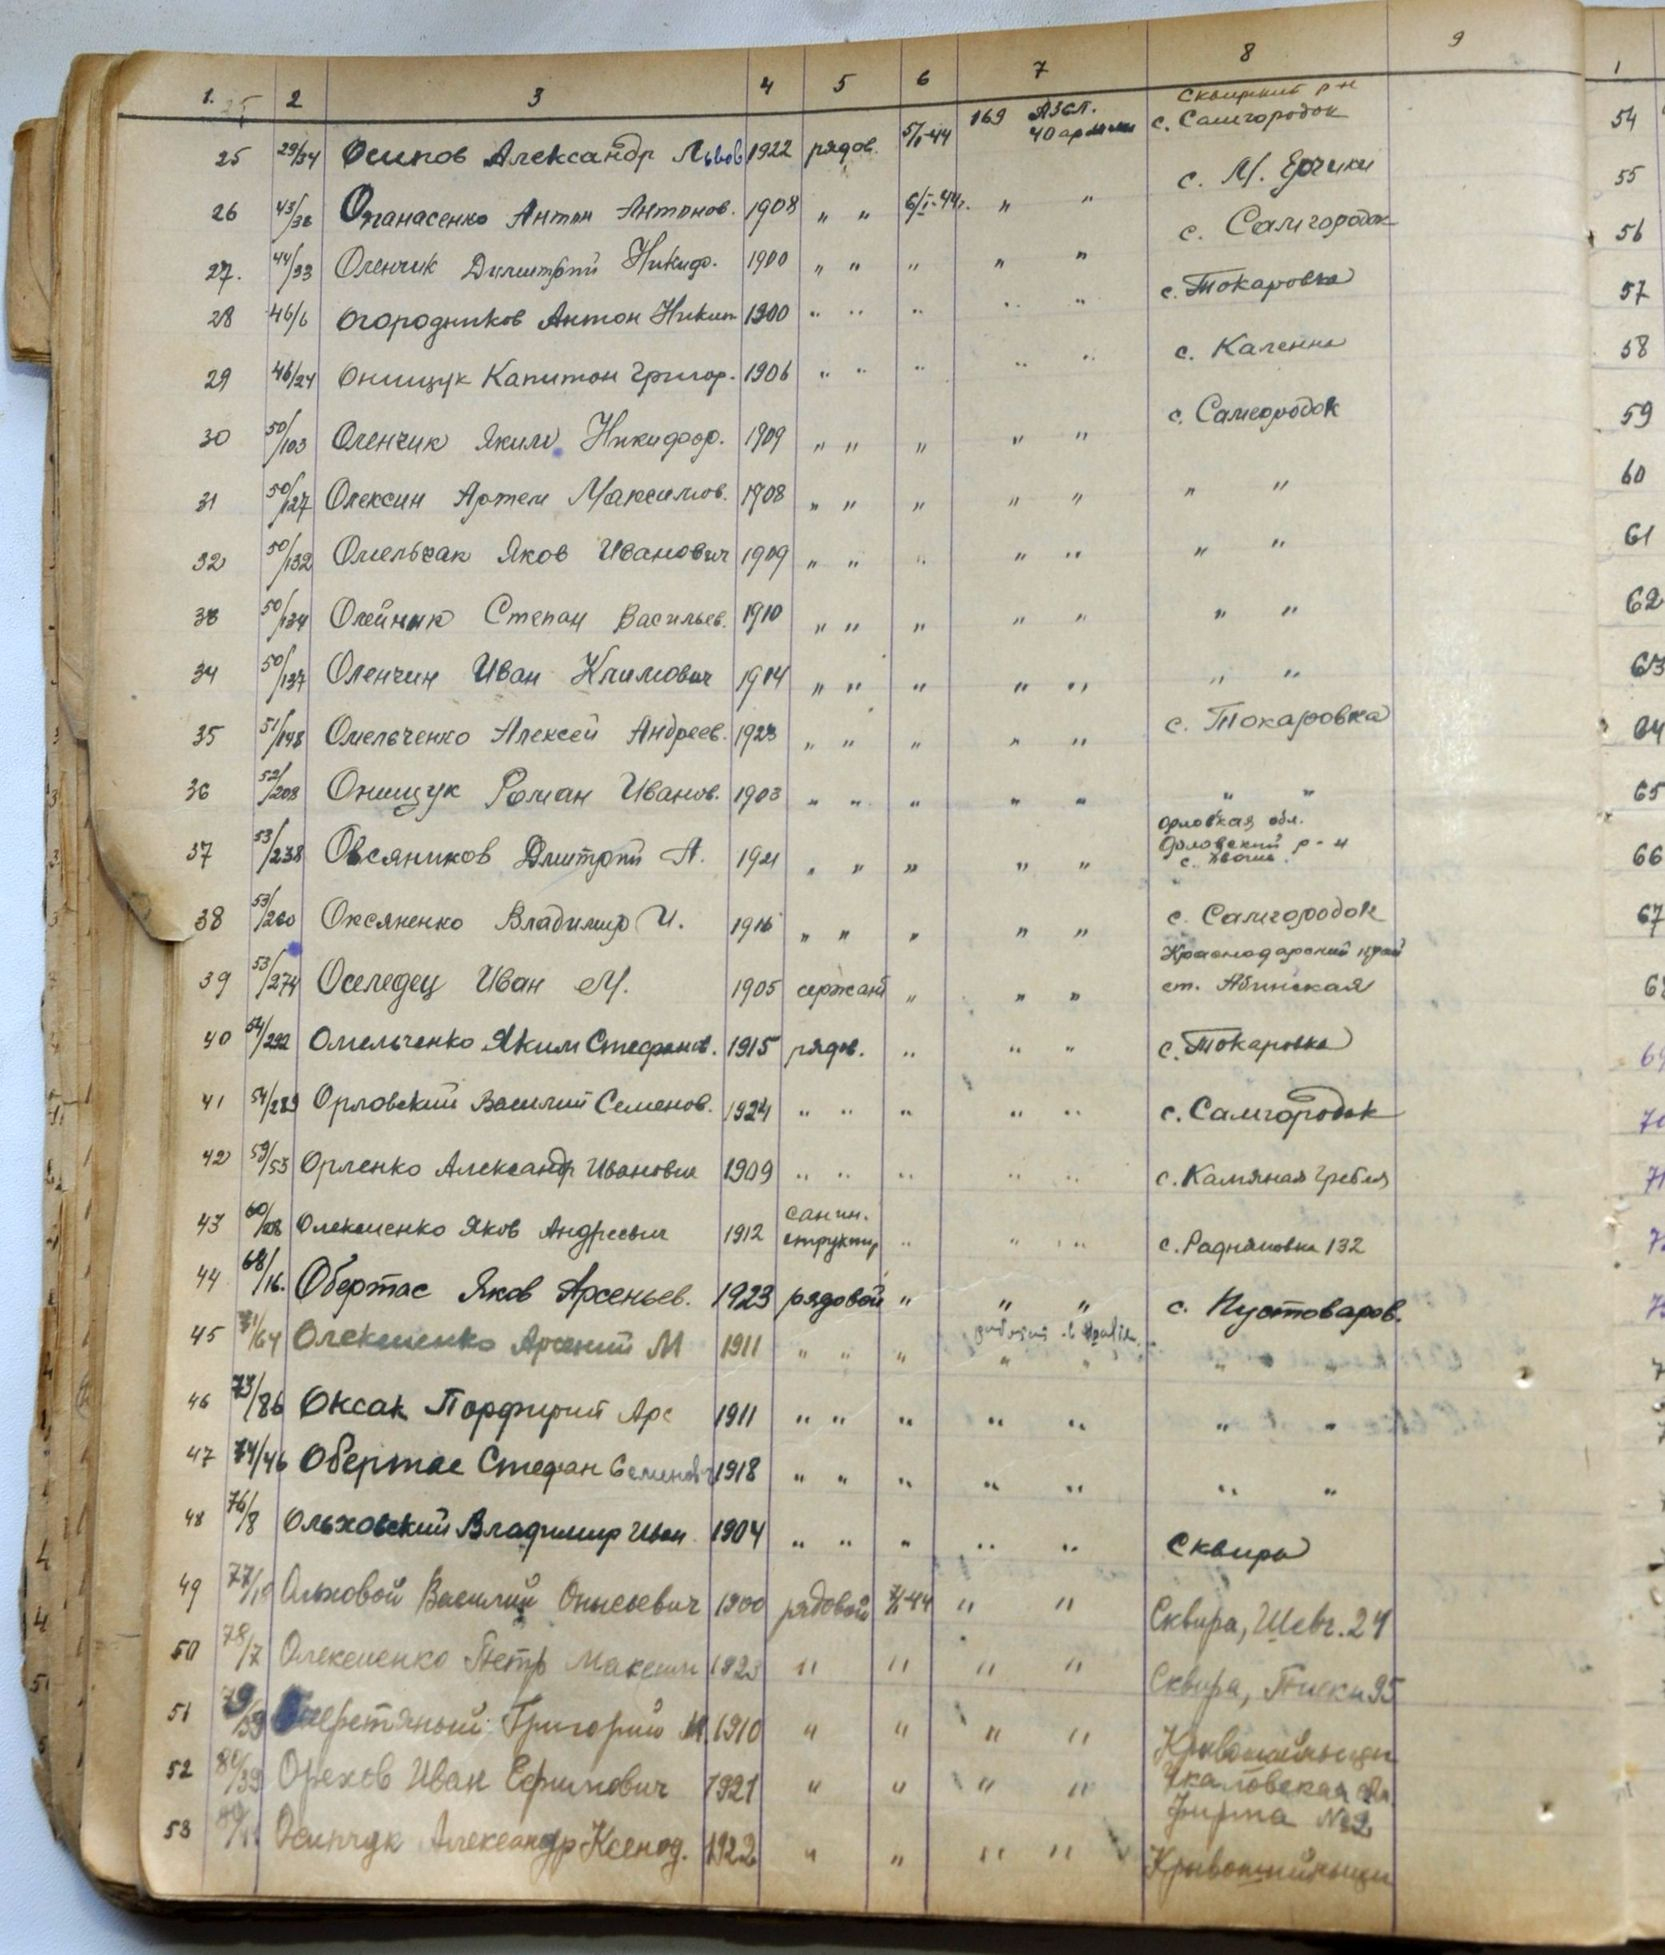 1. 2 3 4 5 6 7 8 9
Сквирский р-н
25 29/34 Осипов Александр Львов 1922 рядов. 5/I-44 169 АЗСП. 40 армии с. Самгородок
26 43/36 Опанасенко Антон Антонов. 1908 " " 6/I-44г. " " с. М. Ерчики
27. 44/33 Оленчик Димитрий Никиф. 1900 " " " " " с. Самгородок
28 46/6 Огородников Антон Никит 1900 " " " " " с. Токаровка
29 46/24 Онищук Капитон Григор. 1906 " " " " " с. Каленна
30 50/103 Оленчик Яким Никифор. 1909 " " " " " с. Самгородок
31 50/127 Олексин Артем Максимов. 1908 " " " " " " "
32 50/132 Омельчак Яков Иванович 1909 " " " " " " "
33 50/134 Олейник Степан Васильев. 1910 " " " " " " "
34 50/137 Оленчин Иван Климович 1914 " " " " " " "
35 51/148 Омельченко Алексей Андреев. 1923 " " " " " с. Токаровка
36 52/208 Онищук Роман Иванов. 1903 " " " " " " "
Орловская обл.
37 53/238 Овсяников Дмитрий А. 1921 " " " " " Орловский р-н
с.
38 53/260 Оксяненко Владимир И. 1916 " " " " " с. Самгородок
Краснодарский край
39 53/274 Оселедец Иван М. 1905 сержант " " " ст. Абинская
40 54/292 Омельченко Яким Стефанов. 1915 рядов. " " " с. Токаровка
41 54/289 Орловский Василий Семенов. 1924 " " " " " с. Самгородок
42 59/53 Орленко Александр Иванович 1909 " " " " " с. Камяная Гребля
43 60/ Олексиенко Яков Андреевич 1912 санин.структор " " " с. 132
44 68/16. Обертас Яков Арсеньев. 1923 рядовой " " " с. Пустоваров.
45 71/64 Олексиенко Арсений М 1911 " " " " " " "
46 73/86 Оксак Порфирий Арс 1911 " " " " " " "
47 74/46 Обертас Стефан Семенович 1918 " " " " " " "
48 76/8 Ольховский Владимир Иван 1904 " " " " " Сквира
49 77/ Ольховой Василий Онысьевич 1900 рядовой 7/I-44 " " Сквира, Шевч. 24
50 78/7 Олексиенко Петр Максим 1923 " " " " Сквира, Писки 95
51 79/59 Григорий М. 1910 " " " " Кривошеинцы
52 80/39 Орехов Иван Ефимович 1921 " " " " Чкаловская обл.
Фирма №2
53 Осипчук Александр Ксеноф. 1922 " " " " Кривошеинцы
1
54
55
56
57
58
59
60
61
62
63
64
65
66
67